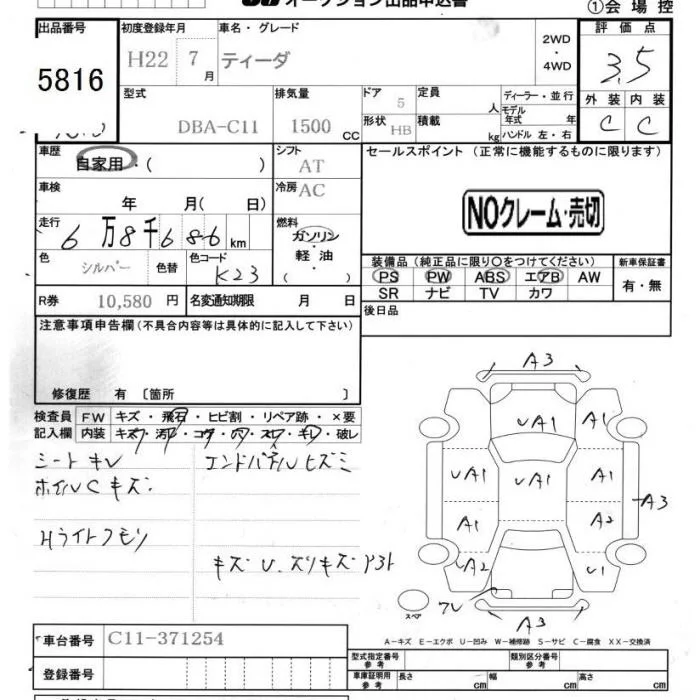 オークション出品申込書
①会場控
出品番号
5816
初度登録年月
H22 7月
車名・グレード
ティーダ
2WD
・
4WD
評価点
3.5
外装 内装
C C
型式
DBA-C11
排気量
1500 CC
ドア
5
定員
人
ディーラー・並行
モデル年式 年
形状
HB
積載
kg
ハンドル 左・右
車歴
自家用・( )
シフト
AT
セールスポイント (正常に機能するものに限ります)
NOクレーム・売切
車検
年 月( 日)
冷房
AC
走行
6万8千686km
燃料
ガソリン
・
軽油
( )
色
シルバー
色替
色コード
K23
装備品 (純正品に限り○をつけてください)
PS PW ABS エアB AW
SR ナビ TV カワ
新車保証書
有・無
R券
10,580 円
名変通知期限 月 日
後日品
注意事項申告欄 (不具合内容等は具体的に記入して下さい)
修復歴 有 〔箇所 〕
検査員記入欄
FW キズ・飛石・ヒビ割・リペア跡・×要
内装 キズ・汚・コゲ・穴・スレ・キレ・破レ
シートキレ
エンドパネルヒズミ
ホイルCキズ
Hライトクモリ
キズ U、スリキズ
A3
UA1 A1
UA1 UA1 A1
A3
A1 A2
A2 U1
A3
スペア
A-キズ E-エクボ U-凹み W-補修跡 S-サビ C-腐食 XX-交換済
車台番号
C11-371254
登録番号
型式指定番号
参考
類別区分番号
参考
車庫証明用
参考
長さ cm 幅 cm 高さ cm